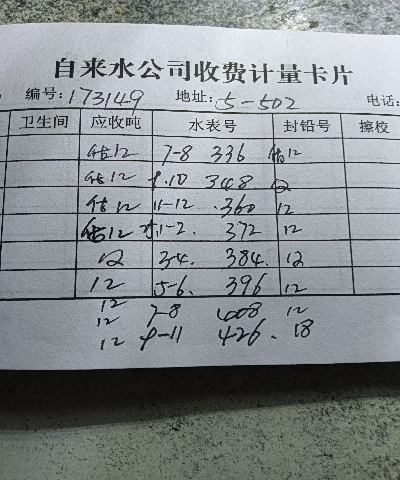 自来水公司收费计量卡片
编号:173149 地址:5-502 电话:
卫生间 应收吨 水表号 封铅号 擦校
估12 7-8 336 估12
估12 9.10 348 12
估12 11-12 .360 12
估12 1-2. 372 12
12 3.4. 384. 12
12 5-6. 396 12
12 7-8 408 12
12
12 9-11 426. 18